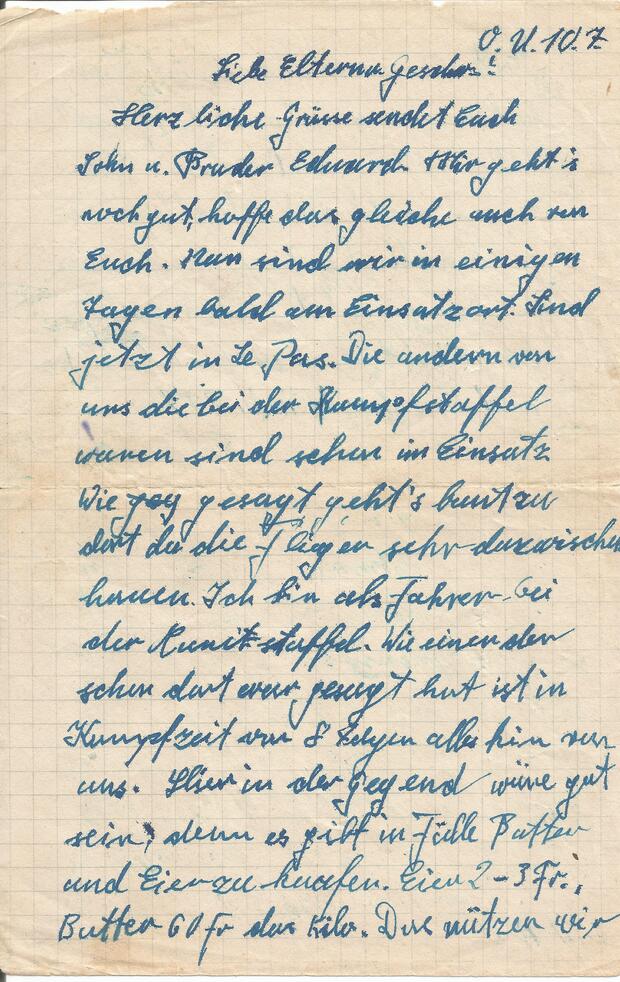 O. U. 10.7.
Liebe Eltern u. Geschw.!
Herzliche Grüsse sendet Euch
Sohn u. Bruder Eduard. Mir geht's
noch gut, hoffe das gleiche auch von
Euch. Nun sind wir in einigen
Tagen bald am Einsatzort. Sind
jetzt in Le Pas. Die andern von
uns die bei der Kampfstaffel
waren sind schon im Einsatz
Wie gesagt geht's bunt zu
dort da die Flieger sehr dazwischen
hauen. Ich bin als Fahrer bei
der Munitstaffel. Wie einen der
schon dort war gesagt hat ist in
Kampfzeit von 8 Tagen alles hin von
uns. Hier in der Gegend wäre gut
sein, denn es gibt in Fülle Butter
und Eier zu kaufen. Eier 2-3 Fr.,
Butter 60 Fr das Kilo. Das nützen wir